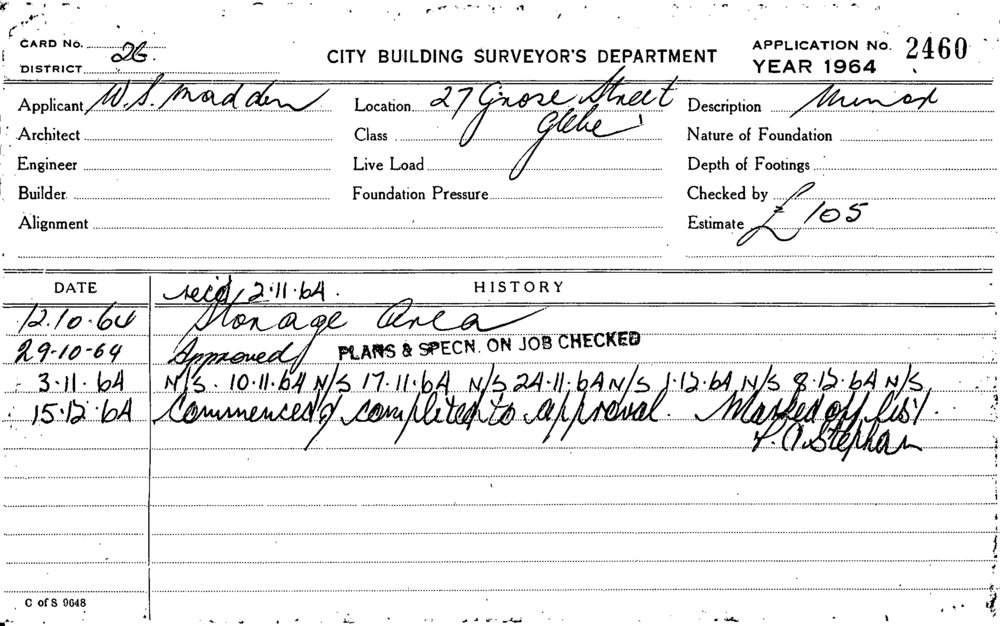 CARD No. 26.
DISTRICT
CITY BUILDING SURVEYOR'S DEPARTMENT
APPLICATION No. 2460
YEAR 1964
Applicant W. S. Madden
Location 27 Grose Street
Glebe
Description Minor
Architect
Class
Nature of Foundation
Engineer
Live Load
Depth of Footings
Builder
Foundation Pressure
Checked by
Alignment
Estimate £105
DATE
HISTORY
rec'd 2.11.64.
12.10.64 Storage Area
29-10-64 Approved PLANS & SPECN. ON JOB CHECKED
3.11.64 N/S. 10.11.64 N/S 17.11.64 N/S 24.11.64 N/S 1.12.64 N/S 8.12.64 N/S
15.12.64 Commenced & completed to approval. Marked off list.
Stephan
C of S 9648